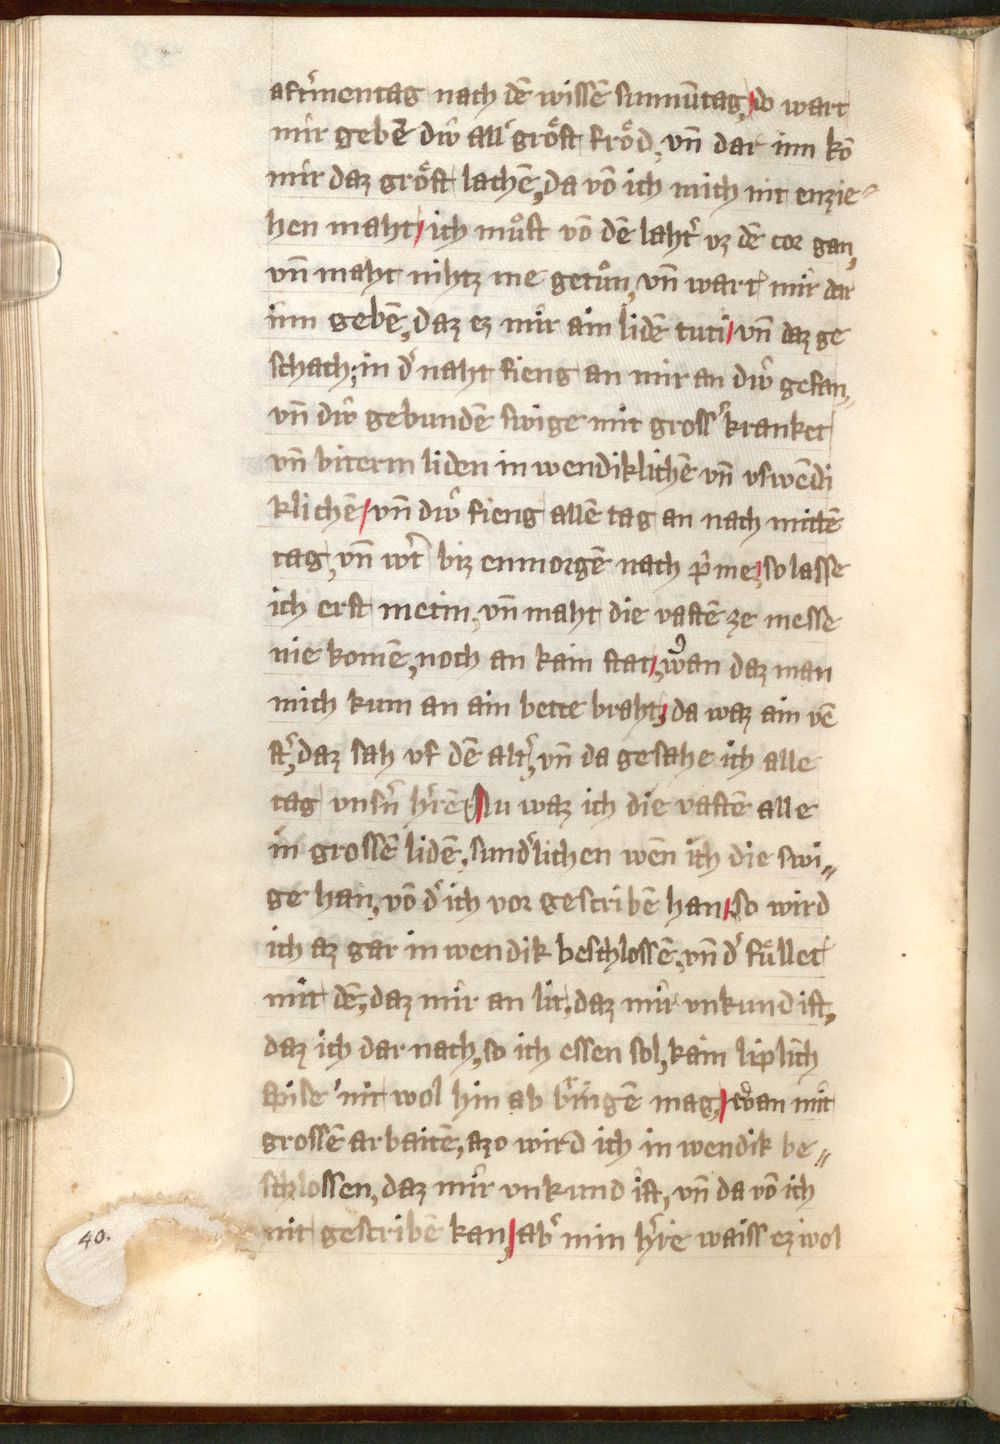 aftˀmentag nach dē wissē sunnūtag, do wart
mir gebē diẘ allˀ grȯ̈st frȯ̈d, vn̄ dar inn kō
mir daz grȯ̈st lachē, da vō ich mich nit enzie=
hen maht, ich mu̇st vō dē lahtˀ vz dē cor gan,
vn̄ maht nihtz me getůn, vn̄ wart mir dar
inn gebē, daz ez mir ain lidē tuti, vn̄ daz ge
schach, in dˀ naht fieng an mir an diẘ gefan,,
vn̄ diẘ gebundē swige mit grossˀ kranket
vn̄ biterm liden in wendiklichē vn̄ vswēdi
klichē, vn̄ diẘ fieng allē tag an nach mittē
tag, vn̄ wˀt biz enmorgē nach pˀme, so lasse
ich erst metin, vn̄ maht die vastē ze messe
nie komē, noch an kain stat, wan daz man
mich kum an ain bette braht, da waz ain vē
stˀ, daz sah vf dē altˀ, vn̄ da gesahe ich alle
tag vnsˀn hˀrē Nu waz ich die vastē alle
in grossē lidē, sundˀlichen wēn ich die swi=
ge han, vō dˀ ich vor gescribē han, so wird
ich az gar in wendik beschlossē, vn̄ dˀ fu̇llet
mit dē, daz mir an lit, daz mir vnkund ist,
daz ich dar nach, so ich essen sol, kain liplich
spise nit wol hin ab bringē mag, wan mit
grossē arbaitē, azo wird ich in wendik be=
schlossen, daz mir vnkund ist, vn̄ da vō ich
nit gescribē kan, abˀ min hˀre waiss ez wol
40.